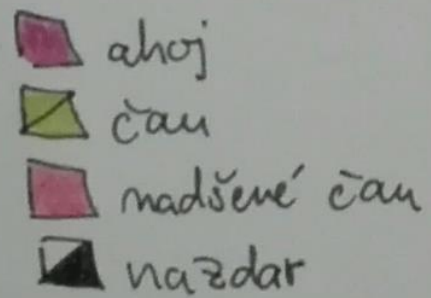 ahoj
čau
nadšené čau
nazdar